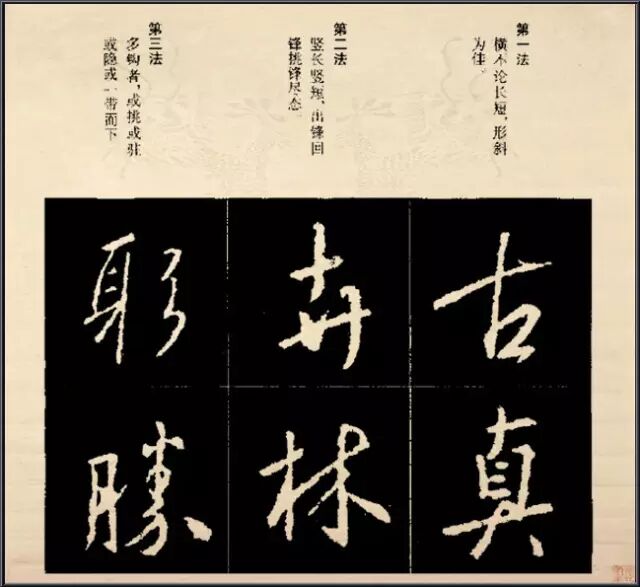 第一法
横不论长短,形斜
为佳。
第二法
竖长竖短,出锋回
锋挑锋尽态
第三法
多钩者,或挑或驻
或隐或一带而下
古
真
卉
林
躬
勝